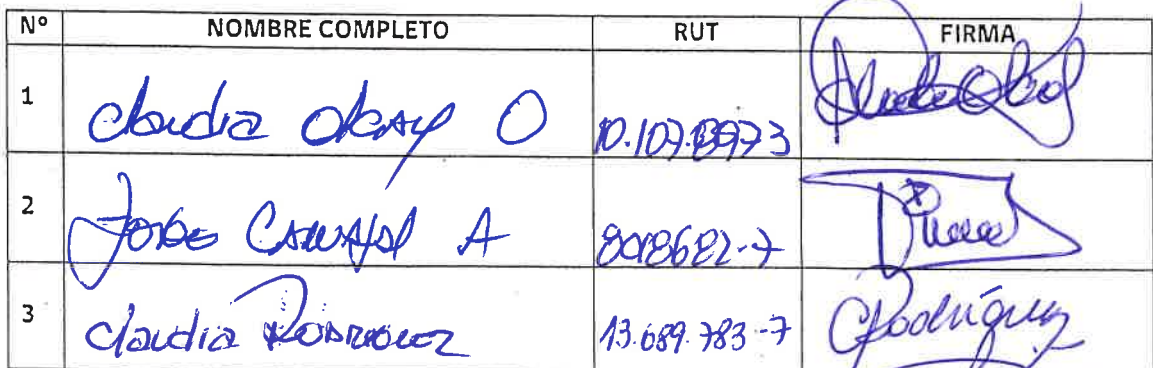 Nº NOMBRE COMPLETO RUT FIRMA
1 Claudia O
2 Jorge Carvajal A 8018682-7
3 Claudia Rodriguez 13.689.783-7 CRodríguez